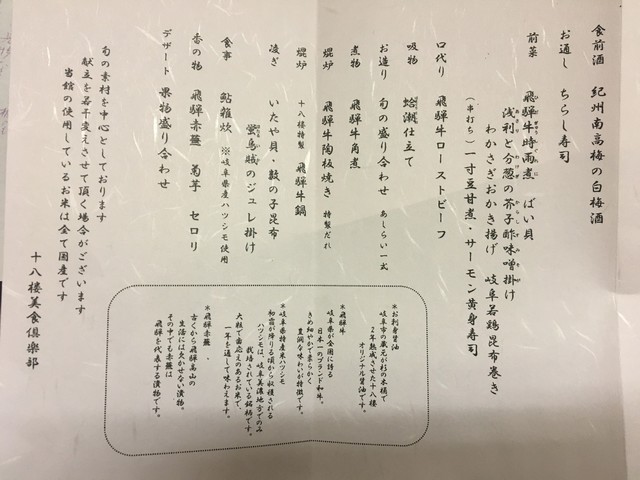 食前酒　紀州南高梅の白梅酒
お通し　ちらし寿司
前菜　飛騨牛時雨煮　ばい貝
浅利と分葱の芥子酢味噌掛け
わかさぎおかき揚げ　岐阜若鶏昆布巻き
（串打ち）一寸豆甘煮・サーモン黄身寿司
口代り　飛騨牛ローストビーフ
吸物　蛤潮仕立て
お造り　旬の盛り合わせ　あしらい一式
煮物　飛騨牛角煮
焜炉　飛騨牛陶板焼き　特製だれ
焜炉　十八楼特製　飛騨牛鍋
凌ぎ　いたや貝・鼓の子昆布
蛍烏賊のジュレ掛け
食事　鮎雑炊　※岐阜県産ハツシモ使用
香の物　飛騨赤蕪　菊芋　セロリ
デザート　果物盛り合わせ
旬の素材を中心としております
献立を若干変えさせて頂く場合がございます
当館の使用しているお米は全て国産です
十八楼美食倶楽部
＊お刺身醤油
岐阜市の蔵元が杉の木桶で
2年熟成させた十八楼
オリジナル醤油です。
＊飛騨牛
岐阜県が全国に誇る
日本一のブランド和牛。
きめ細やかで柔らかく
豊潤な味わいが特徴です。
＊岐阜県特産米ハツシモ
初霜が降りる頃から収穫される
ハツシモは、岐阜美濃地方でのみ
栽培されている銘柄です。
大粒で歯応えのあるお米で、
一年を通して味わえます。
＊飛騨赤蕪、
古くから飛騨高山の
生活には欠かせない漬物。
その中でも赤蕪は
飛騨を代表する漬物です。